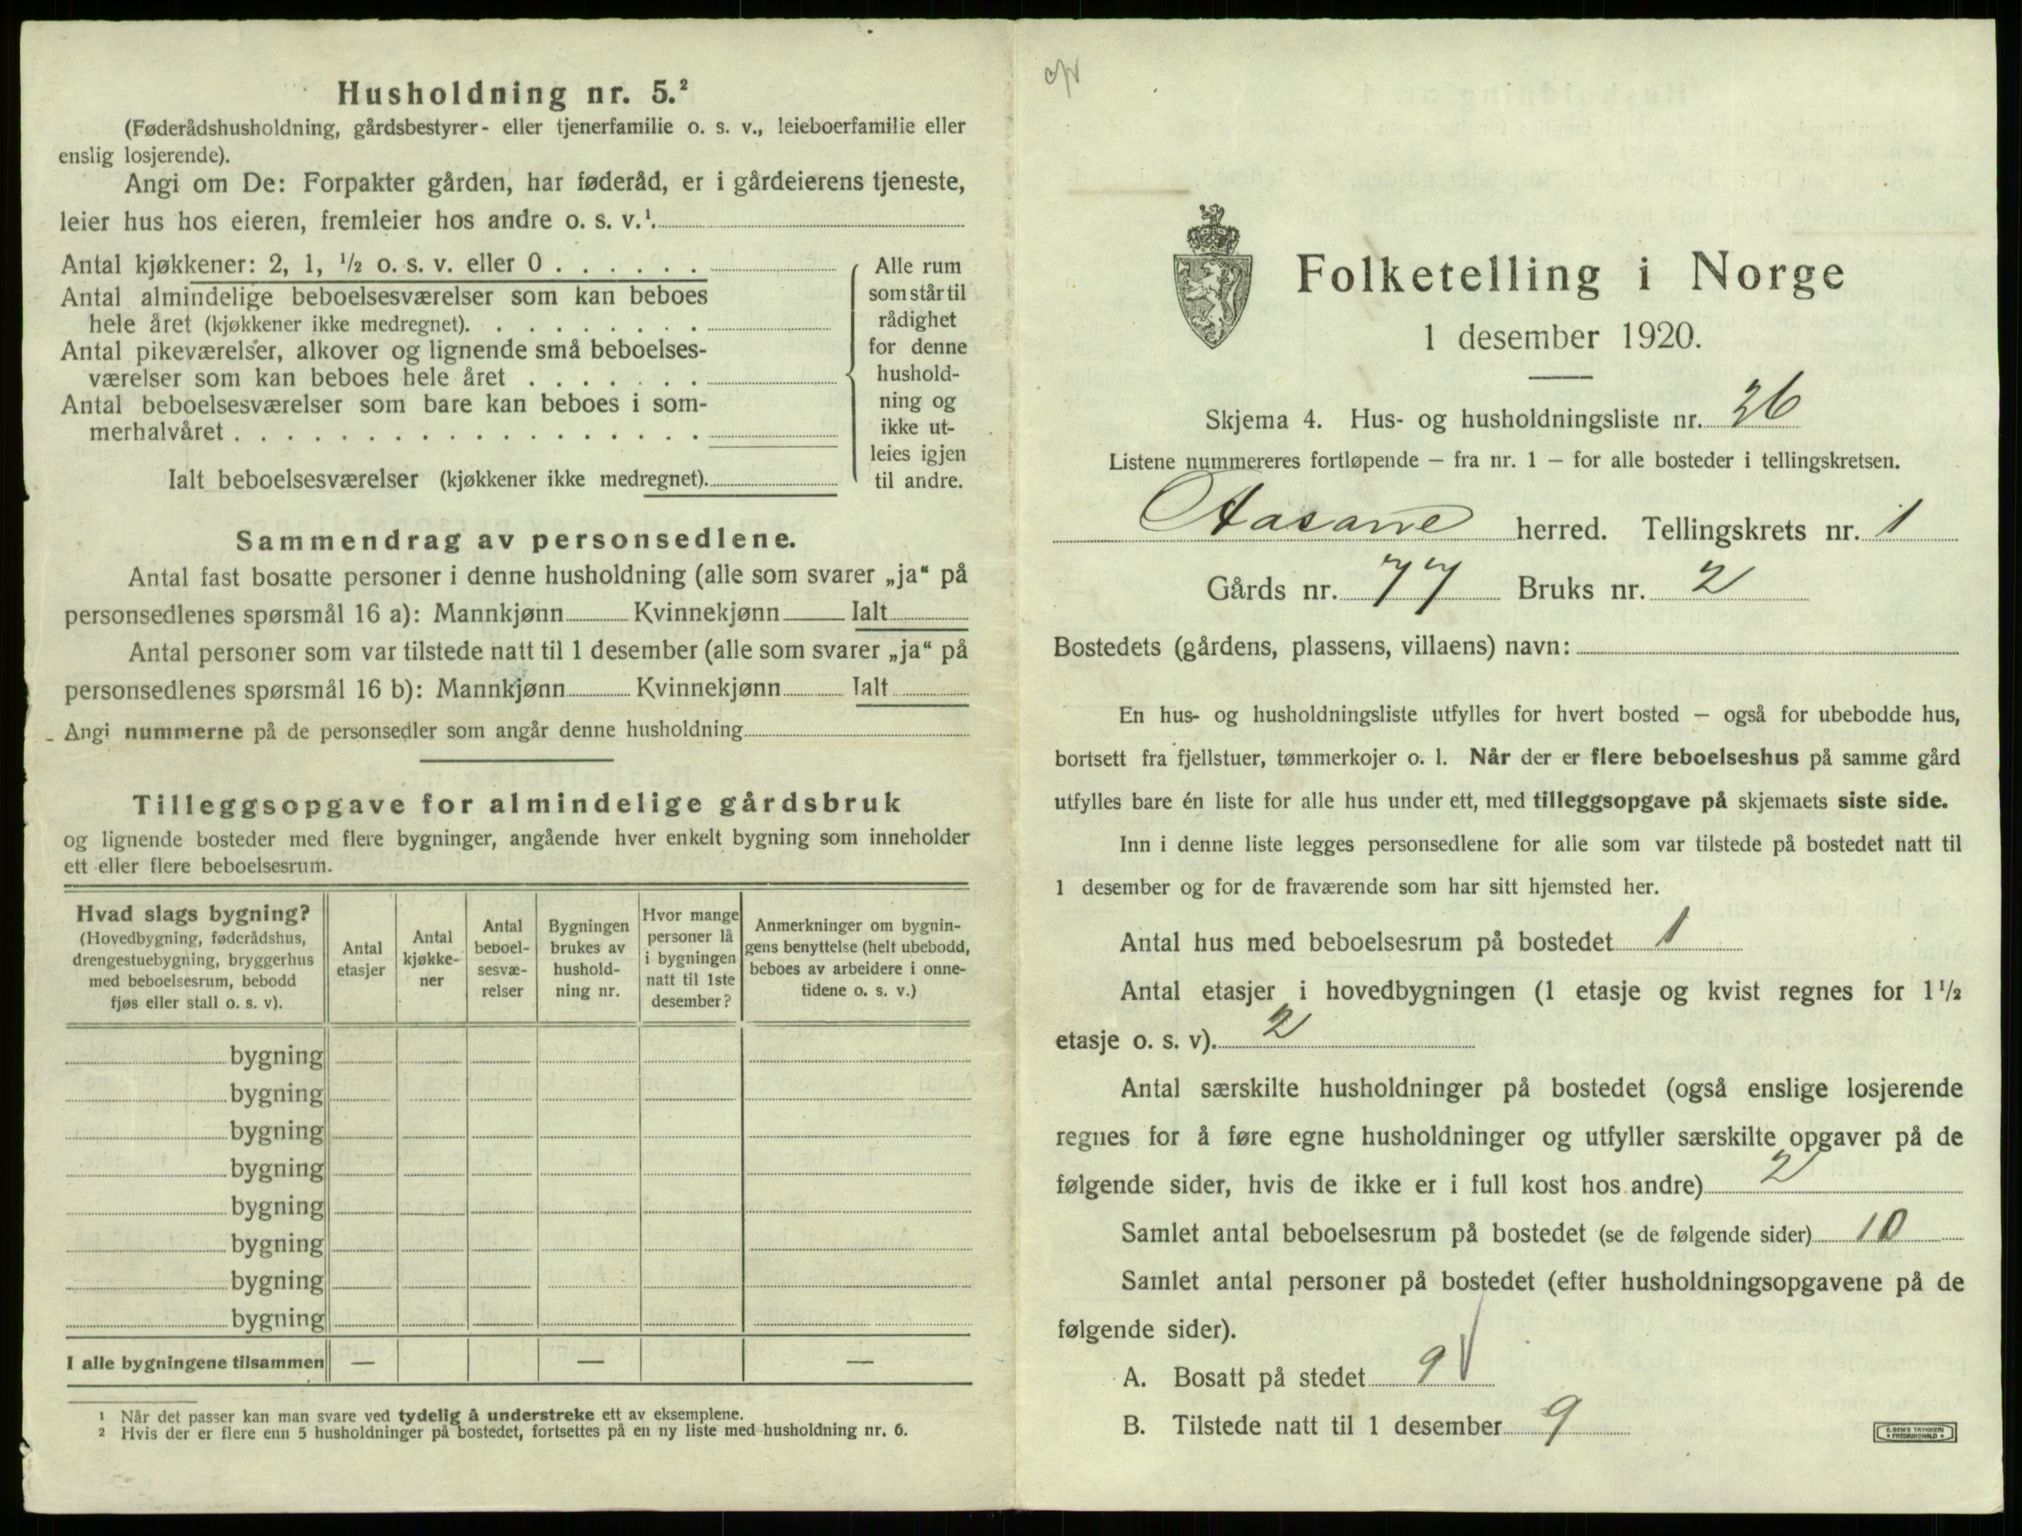 Husholdning nr. 5.²
(Føderådshusholdning, gårdsbestyrer- eller tjenerfamilie o. s. v., leieboerfamilie eller
enslig losjerende).
Angi om De: Forpakter gården, har føderåd, er i gårdeierens tjeneste,
leier hus hos eieren, fremleier hos andre o. s. v.¹.
Antal kjøkkener: 2, 1, ½ o. s. v. eller 0 . . . . . .
Antal almindelige beboelsesværelser som kan beboes
hele året (kjøkkener ikke medregnet). . . . . . . . .
Antal pikeværelser, alkover og lignende små beboelses-
værelser som kan beboes hele året . . . . . . .
Antal beboelsesværelser som bare kan beboes i som-
merhalvåret . . . . . . . . . . . . . . . . . .
Ialt beboelsesværelser (kjøkkener ikke medregnet).
Alle rum
som står til
rådighet
for denne
hushold-
ning og
ikke ut-
leies igjen
til andre.
Sammendrag av personsedlene.
Antal fast bosatte personer i denne husholdning (alle som svarer „ja“ på
personsedlenes spørsmål 16 a): Mannkjønn Kvinnekjønn Ialt
Antal personer som var tilstede natt til 1 desember (alle som svarer „ja“ på
personsedlenes spørsmål 16 b): Mannkjønn Kvinnekjønn Ialt
Angi nummerne på de personsedler som angår denne husholdning
Tilleggsopgave for almindelige gårdsbruk
og lignende bosteder med flere bygninger, angående hver enkelt bygning som inneholder
ett eller flere beboelsesrum.
Hvad slags bygning?
(Hovedbygning, føderådshus,
drengestuebygning, bryggerhus
med beboelsesrum, bebodd
fjøs eller stall o. s. v).
Antal
etasjer
Antal
kjøkke-
ner
Antal
beboel-
sesvæ-
relser
Bygningen
brukes av
hushold-
ning nr.
Hvor mange
personer lå
i bygningen
natt til 1ste
desember?
Anmerkninger om bygnin-
gens benyttelse (helt ubebodd,
beboes av arbeidere i onne-
tidene o. s. v.)
bygning
bygning
bygning
bygning
bygning
bygning
bygning
bygning
I alle bygningene tilsammen — — —
¹ Når det passer kan man svare ved tydelig å understreke ett av eksemplene.
² Hvis der er flere enn 5 husholdninger på bostedet, fortsettes på en ny liste med husholdning nr. 6.
Folketelling i Norge
1 desember 1920.
Skjema 4. Hus- og husholdningsliste nr. 36
Listene nummereres fortløpende – fra nr. 1 – for alle bosteder i tellingskretsen.
Aasane herred. Tellingskrets nr. 1
Gårds nr. 77 Bruks nr. 2
Bostedets (gårdens, plassens, villaens) navn:
En hus- og husholdningsliste utfylles for hvert bosted – også for ubebodde hus,
bortsett fra fjellstuer, tømmerkojer o. l. Når der er flere beboelseshus på samme gård
utfylles bare én liste for alle hus under ett, med tilleggsopgave på skjemaets siste side.
Inn i denne liste legges personsedlene for alle som var tilstede på bostedet natt til
1 desember og for de fraværende som har sitt hjemsted her.
Antal hus med beboelsesrum på bostedet 1
Antal etasjer i hovedbygningen (1 etasje og kvist regnes for 1½
etasje o. s. v). 2
Antal særskilte husholdninger på bostedet (også enslige losjerende
regnes for å føre egne husholdninger og utfyller særskilte opgaver på de
følgende sider, hvis de ikke er i full kost hos andre) 2
Samlet antal beboelsesrum på bostedet (se de følgende sider) 10
Samlet antal personer på bostedet (efter husholdningsopgavene på de
følgende sider).
A. Bosatt på stedet 9
B. Tilstede natt til 1 desember 9